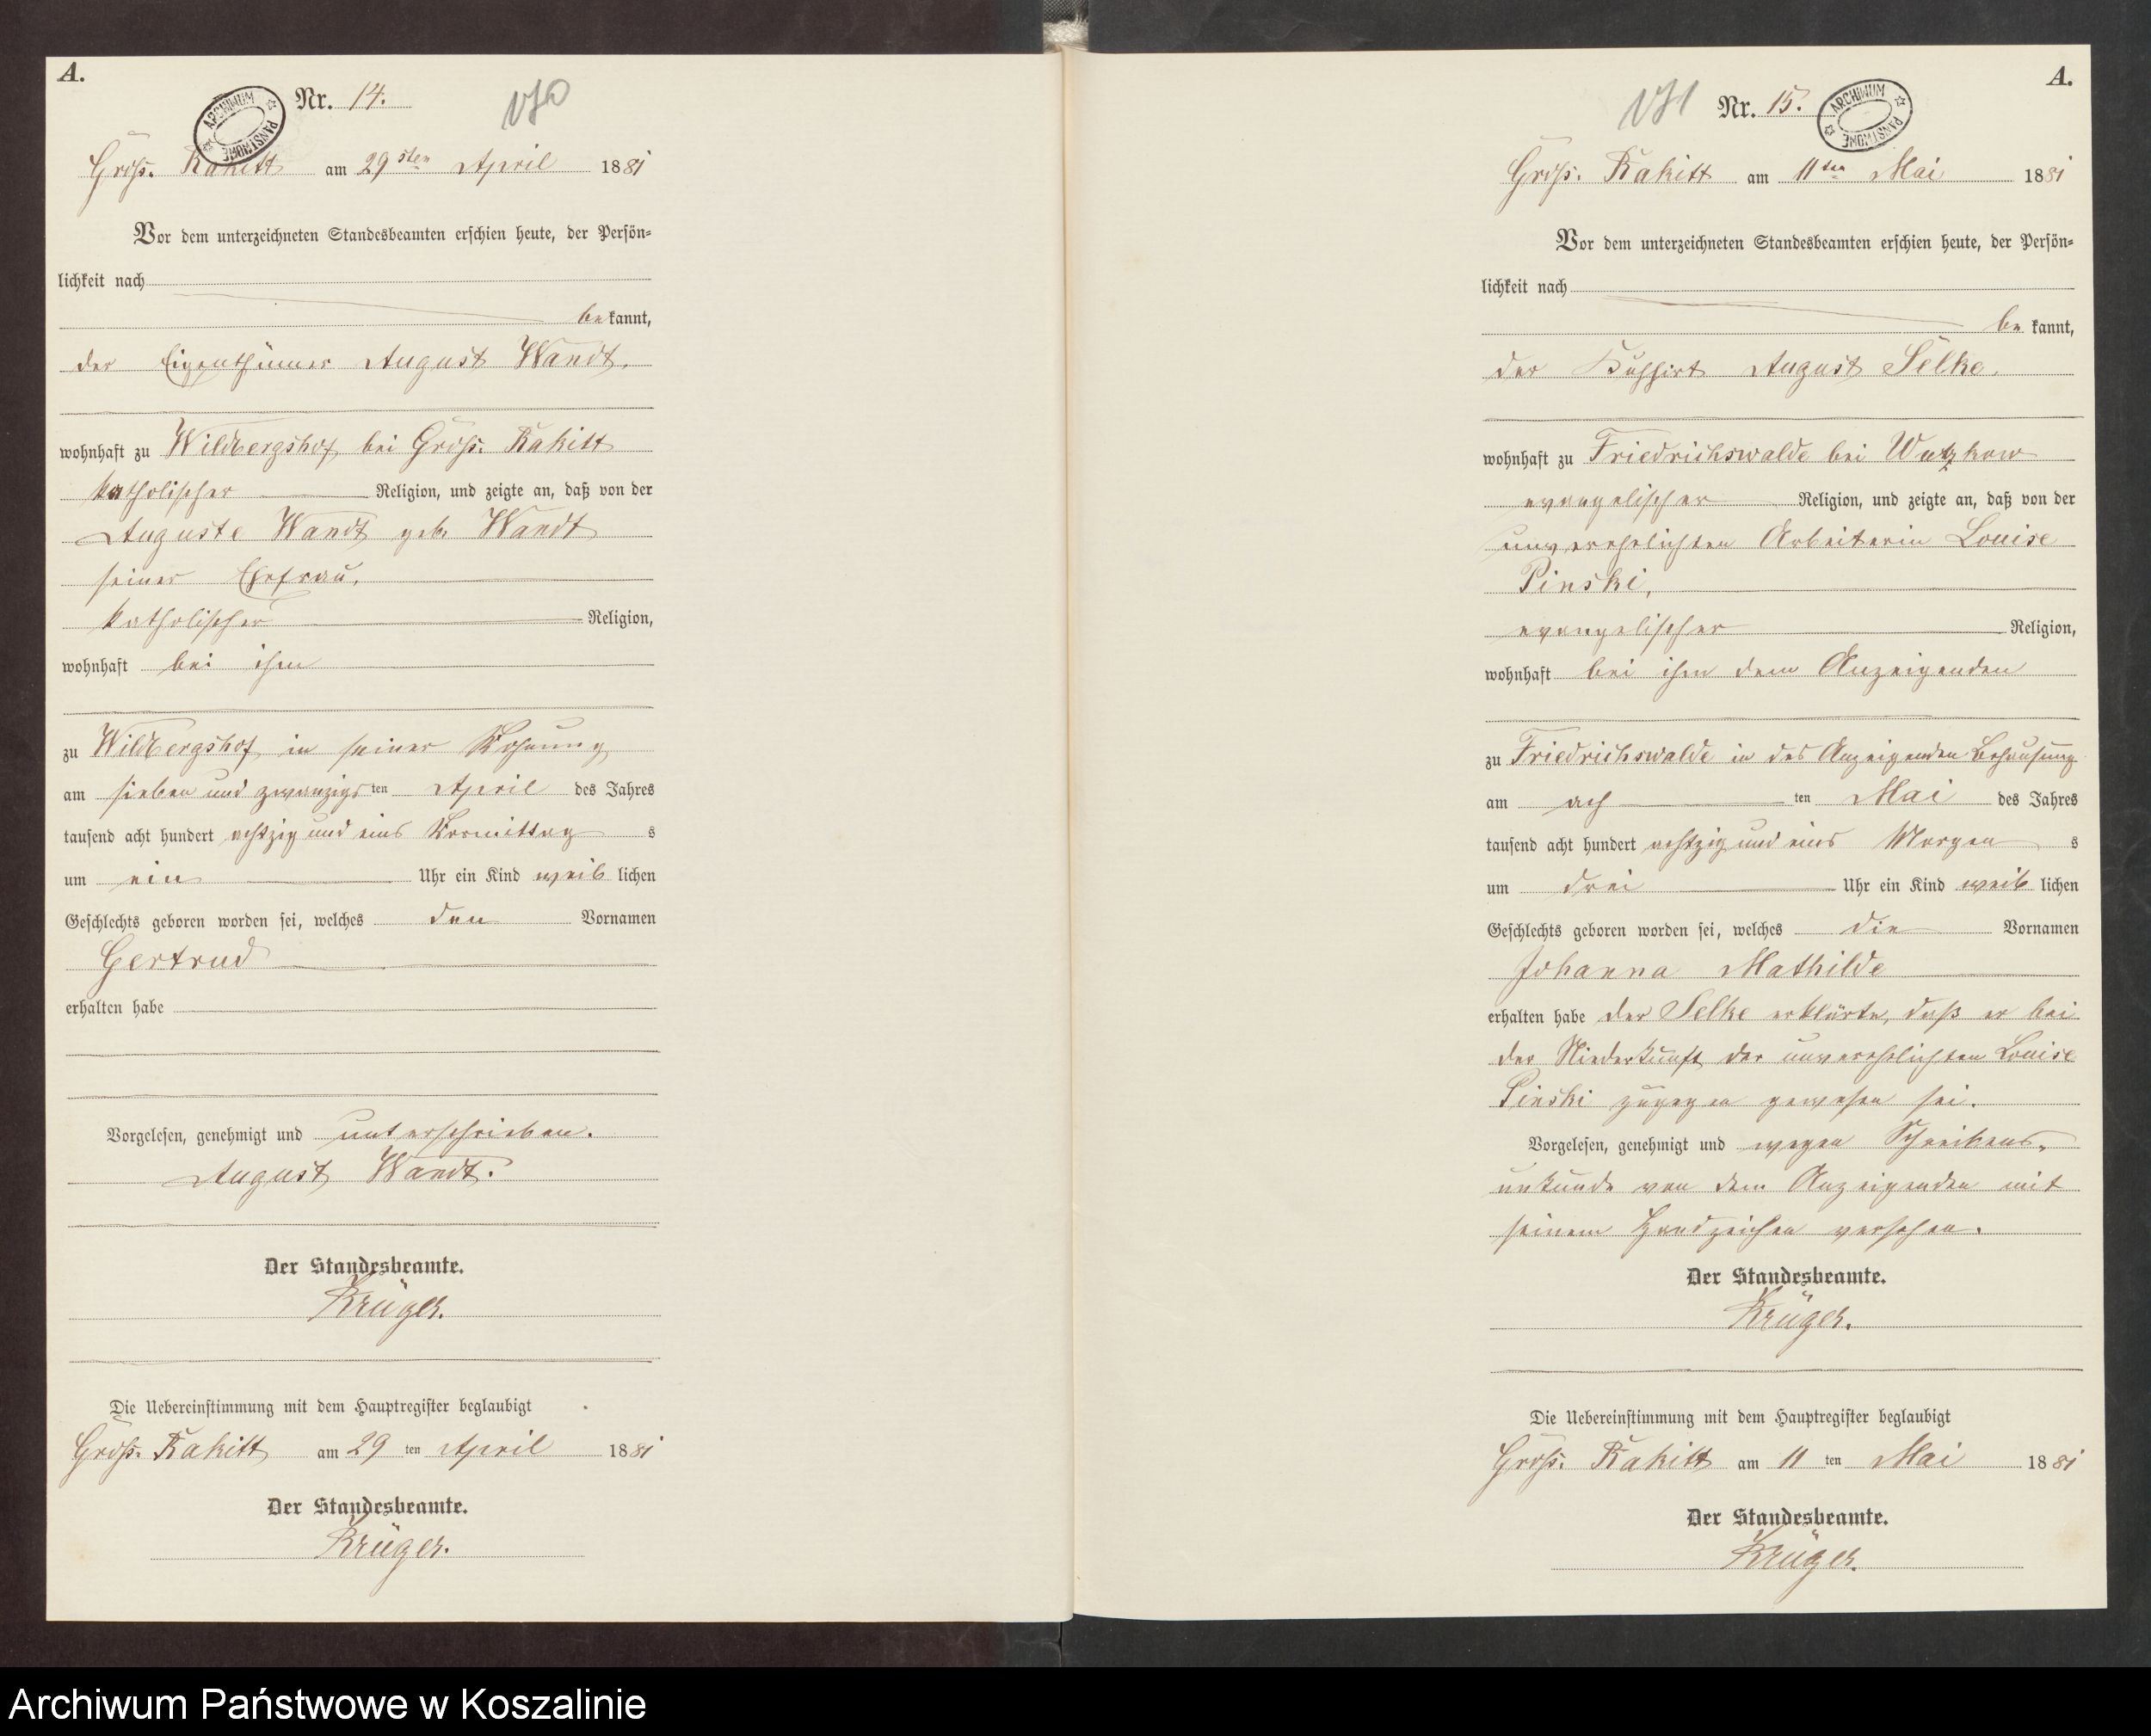 A.
Nr. 14.
170
ARCHIWUM PAŃSTWOWE
Groß. Rakitt am 29sten April 1881
Vor dem unterzeichneten Standesbeamten erschien heute, der Persön=
lichkeit nach
bekannt,
der Eigenthümer August Wandt,
wohnhaft zu Wildbergshof bei Groß. Rakitt
katholischer Religion, und zeigte an, daß von der
Auguste Wandt geb. Wandt
seiner Ehefrau,
katholischer Religion,
wohnhaft bei ihm
zu Wildbergshof in seiner Wohnung
am sieben und zwanzigsten April des Jahres
tausend acht hundert achtzig und eins Vormittags
um ein Uhr ein Kind weiblichen
Geschlechts geboren worden sei, welches den Vornamen
Gertrud
erhalten habe
Vorgelesen, genehmigt und unterschrieben.
August Wandt.
Der Standesbeamte.
Krüger.
Die Uebereinstimmung mit dem Hauptregister beglaubigt
Groß. Rakitt am 29ten April 1881
Der Standesbeamte.
Krüger.
A.
171
Nr. 15.
ARCHIWUM PAŃSTWOWE
Groß. Rakitt am 11ten Mai 1881
Vor dem unterzeichneten Standesbeamten erschien heute, der Persön=
lichkeit nach
bekannt,
der Kuhhirt August Selke,
wohnhaft zu Friedrichswalde bei Wutzkow
evangelischer Religion, und zeigte an, daß von der
unverehelichten Arbeiterin Louise
Pinski,
evangelischer Religion,
wohnhaft bei ihm dem Anzeigenden
zu Friedrichswalde in des Anzeigenden Behausung
am achten Mai des Jahres
tausend acht hundert achtzig und eins Morgens
um drei Uhr ein Kind weiblichen
Geschlechts geboren worden sei, welches die Vornamen
Johanna Mathilde
erhalten habe der Selke erklärte, daß er bei
der Niederkunft der unverehelichten Louise
Pinski zugegen gewesen sei.
Vorgelesen, genehmigt und wegen Schreibens=
unkunde von dem Anzeigenden mit
seinem Handzeichen versehen.
Der Standesbeamte.
Krüger.
Die Uebereinstimmung mit dem Hauptregister beglaubigt
Groß. Rakitt am 11ten Mai 1881
Der Standesbeamte.
Krüger.
Archiwum Państwowe w Koszalinie